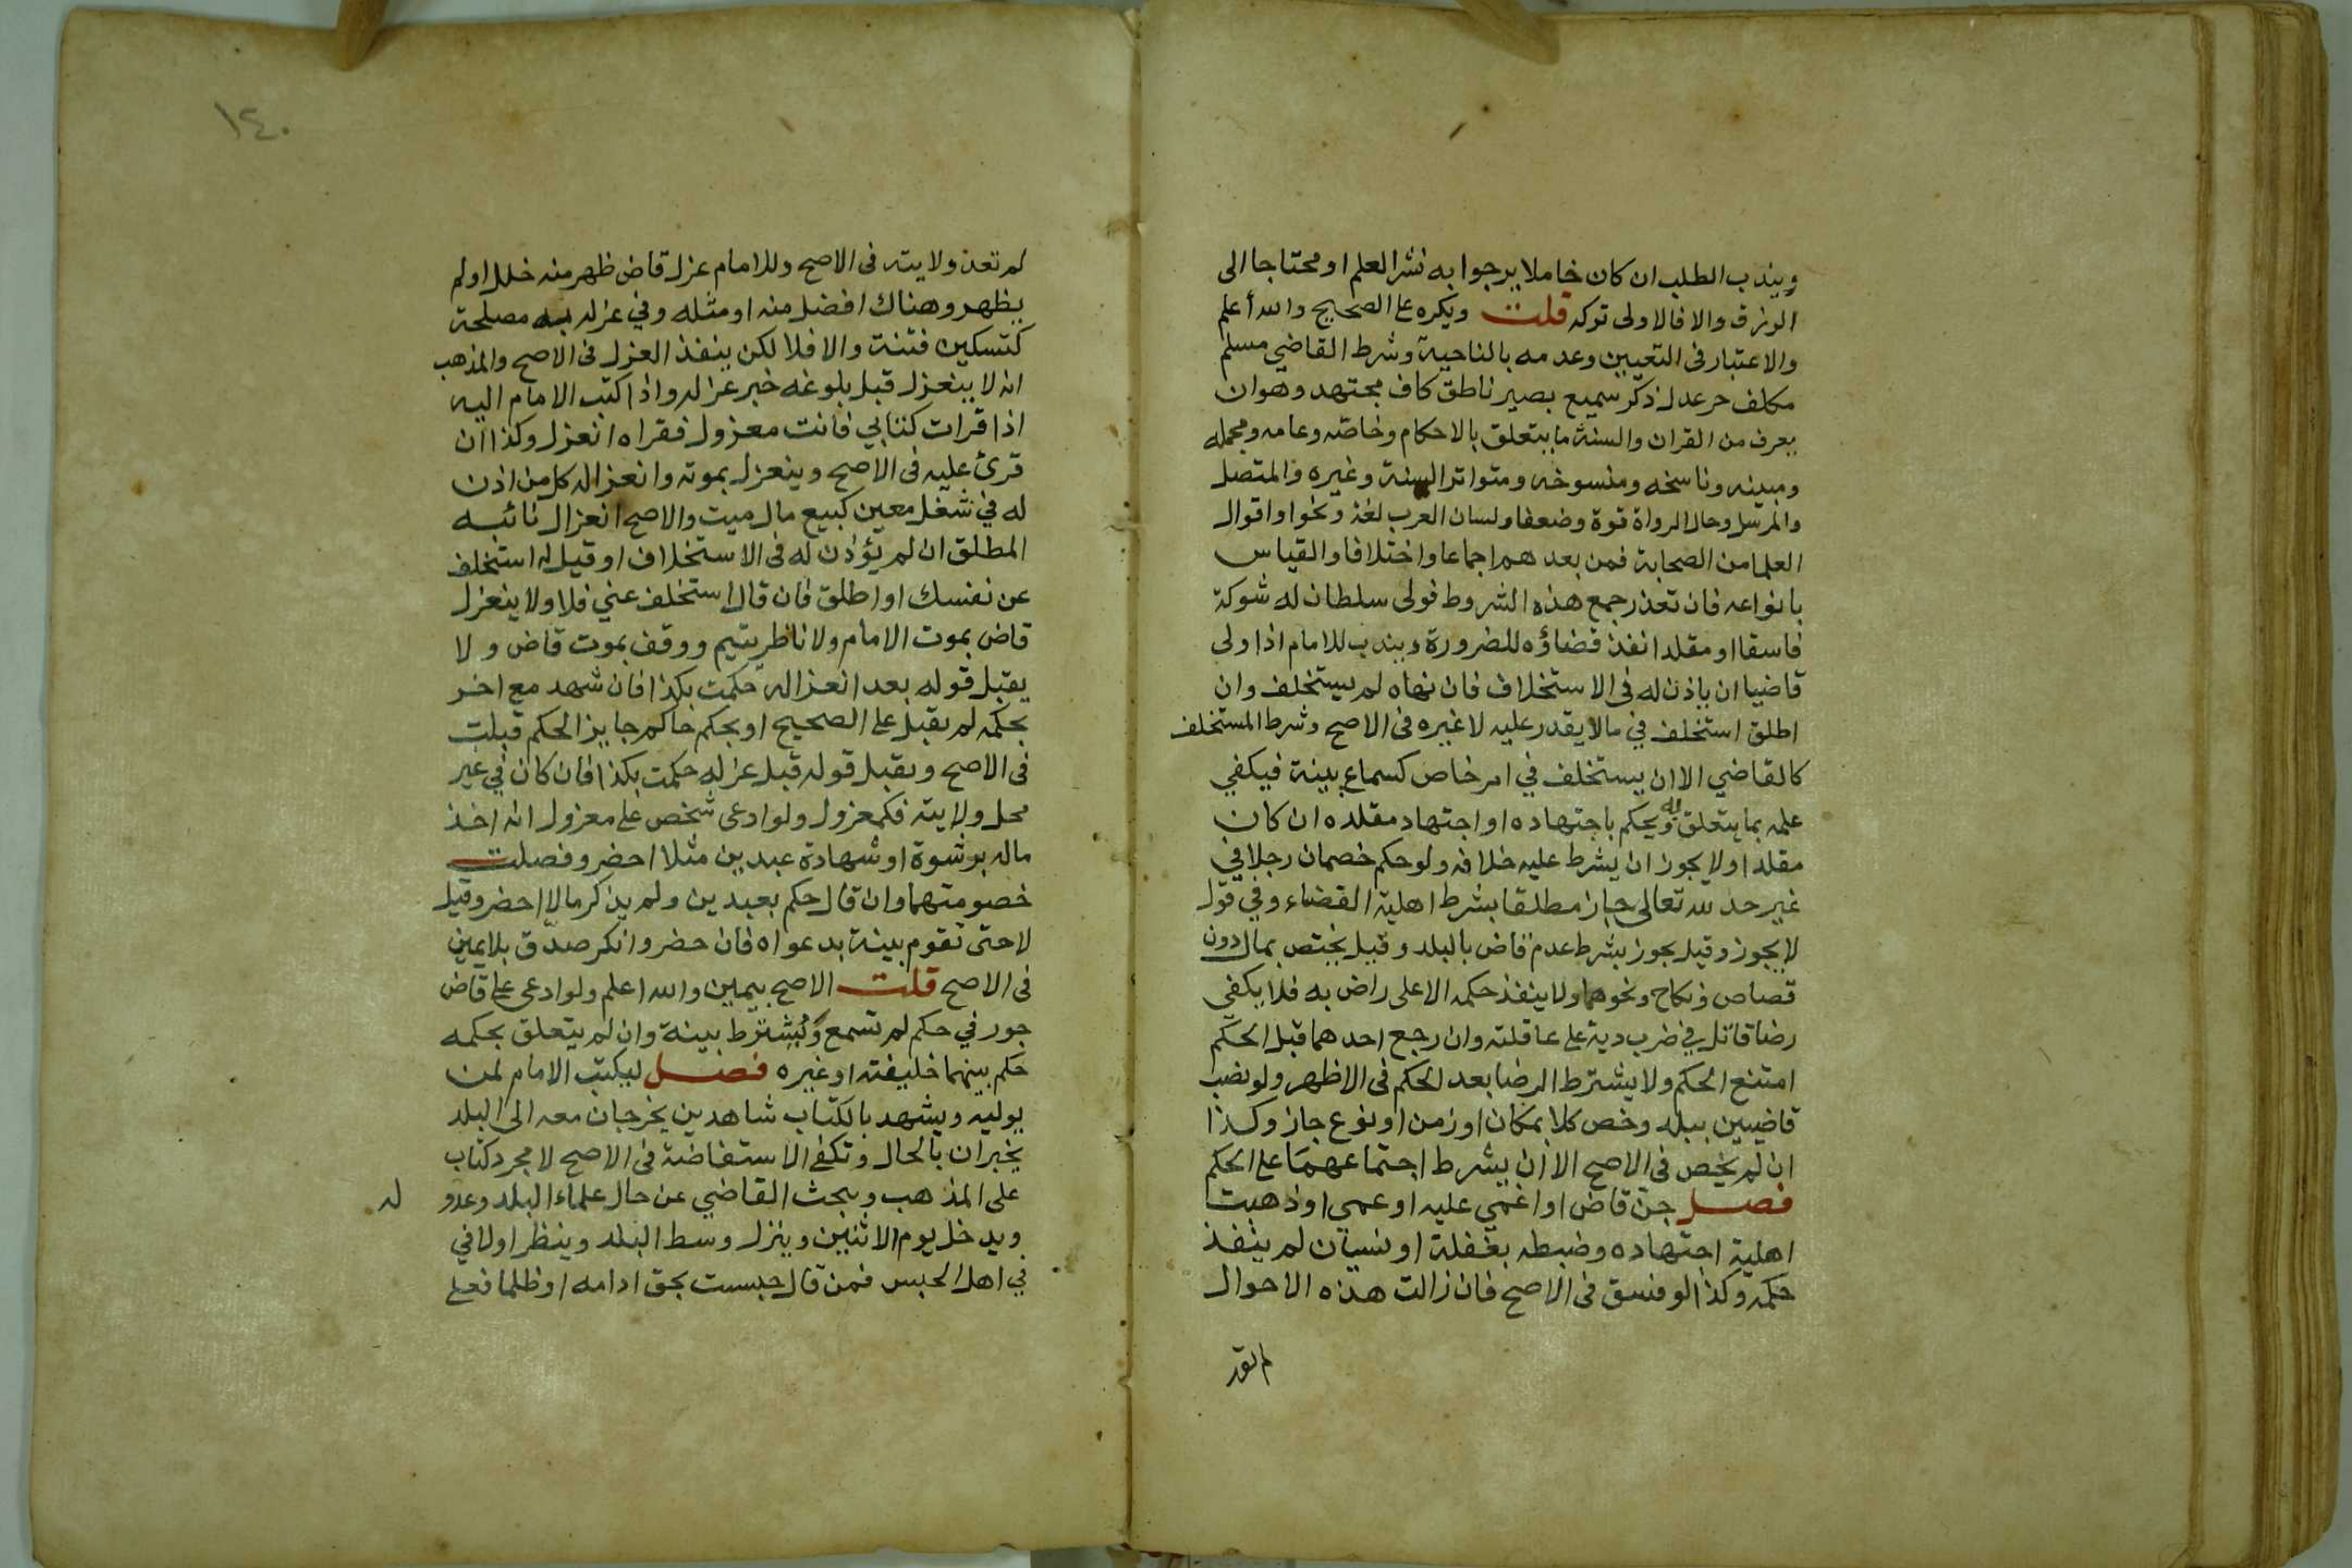 ويندب الطلب ان كان خاملا يرجوا به نشر العلم او محتاجا الى
الرزق والا فالاولى تركه قلت ويكره على الصحيح والله أعلم
والاعتبار في التعيين وعدمه بالناحية وشرط القاضي مسلم
مكلف حر عدل ذكر سميع بصير ناطق كاف مجتهد وهو ان
يعرف من القران والسنة ما يتعلق بالاحكام وخاصه وعامه ومجمله
ومبينه وناسخه ومنسوخه ومتواتر السنة وغيره والمتصل
والمرسل وحال الرواة قوة وضعفا ولسان العرب لغة ونحوا واقوال
العلما من الصحابة فمن بعدهم اجماعا واختلافا والقياس
بانواعه فان تعذر جمع هذه الشروط فولى سلطان له شوكة
فاسقا او مقلدا نفذ قضاؤه للضرورة ويندب للامام اذا ولى
قاضيا ان ياذن له في الاستخلاف فان نهاه لم يستخلف وان
اطلق استخلف في مالا يقدر عليه لا غيره في الاصح وشرط المستخلف
كالقاضي الا ان يستخلف في امر خاص كسماع بينة فيكفي
علمه بما يتعلق به ويحكم باجتهاده او اجتهاد مقلده ان كان
مقلدا ولا يجوز ان يشرط عليه خلافه ولو حكم خصمان رجلا في
غير حد لله تعالى جاز مطلقا بشرط اهلية القضاء وفي قول
لا يجوز وقيل يجوز بشرط عدم قاض بالبلد وقيل يختص بمال دون
قصاص ونكاح ونحوهما ولا ينفذ حكمه الا على راض به فلا يكفي
رضا قاتل في ضرب دية على عاقلته وان رجع احدهما قبل الحكم
امتنع الحكم ولا يشترط الرضا بعد الحكم في الاظهر ولو نصب
قاضيين ببلد وخص كلا بمكان او زمن او نوع جاز وكذا
ان لم يخص في الاصح الا ان يشرط اجتماعهما على الحكم
فصل جن قاض او اغمي عليه او عمي او ذهبت
اهلية اجتهاده وضبطه بغفلة او نسيان لم ينفذ
حكمه وكذا لو فسق في الاصح فان زالت هذه الاحوال
لم تعد
١٤٠
لم تعد ولايته في الاصح وللامام عزل قاض ظهر منه خلل او لم
يظهر وهناك افضل منه او مثله وفي عزله به مصلحة
كتسكين فتنة والا فلا لكن ينفذ العزل في الاصح والمذهب
انه لا ينعزل قبل بلوغه خبر عزله واذا كتب الامام اليه
اذا قرات كتابي فانت معزول فقراه انعزل وكذا ان
قرئ عليه في الاصح وينعزل بموته وانعزاله كل من اذن
له في شغل معين كبيع مال ميت والاصح انعزال نائبه
المطلق ان لم يؤذن له في الاستخلاف او قيل له استخلف
عن نفسك او اطلق فان قال استخلف عني فلا ولا ينعزل
قاض بموت الامام ولا ناظر يتيم ووقف بموت قاض ولا
يقبل قوله بعد انعزاله حكمت بكذا فان شهد مع اخر
بحكمه لم يقبل على الصحيح او بحكم حاكم جايز الحكم قبلت
في الاصح ويقبل قوله قبل عزله حكمت بكذا فان كان في غير
محل ولايته فكمعزول ولو ادعى شخص على معزول انه اخذ
ماله برشوة او شهادة عبدين مثلا احضر وفصلت
خصومتهما وان قال حكم بعبدين ولم يذكر مالا احضر وقيل
لا حتى تقوم بينة بدعواه فان حضر وانكر صدق بلا يمين
في الاصح قلت الاصح بيمين والله اعلم ولو ادعى على قاض
جور في حكم لم تسمع ويشترط بينة وان لم يتعلق بحكمه
حكم بينهما خليفته او غيره فصل ليكتب الامام لمن
يوليه ويشهد بالكتاب شاهدين يخرجان معه الى البلد
يخبران بالحال وتكفي الاستفاضة في الاصح لا مجرد كتاب
على المذهب ويبحث القاضي عن حال علماء البلد وعدو له
ويدخل يوم الاثنين وينزل وسط البلد وينظر اولا في
في اهل الحبس فمن قال حبست بحق ادامه او ظلما فعلى